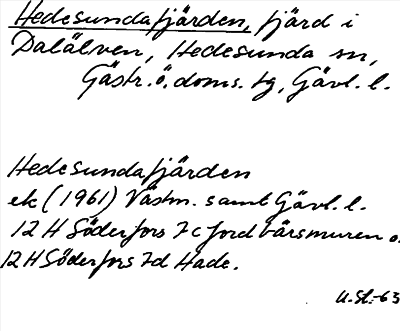 Hedesundafjärden, fjärd i
Dalälven, Hedesunda sn,
Gästr. ö. doms. tg, Gävl. l.
Hedesundafjärden
ek (1961) Västm. samt Gävl. l.
12 H Söderfors 7c Jordbärsmuren o.
12 H Söderfors 7d Hade.
U.St.-63